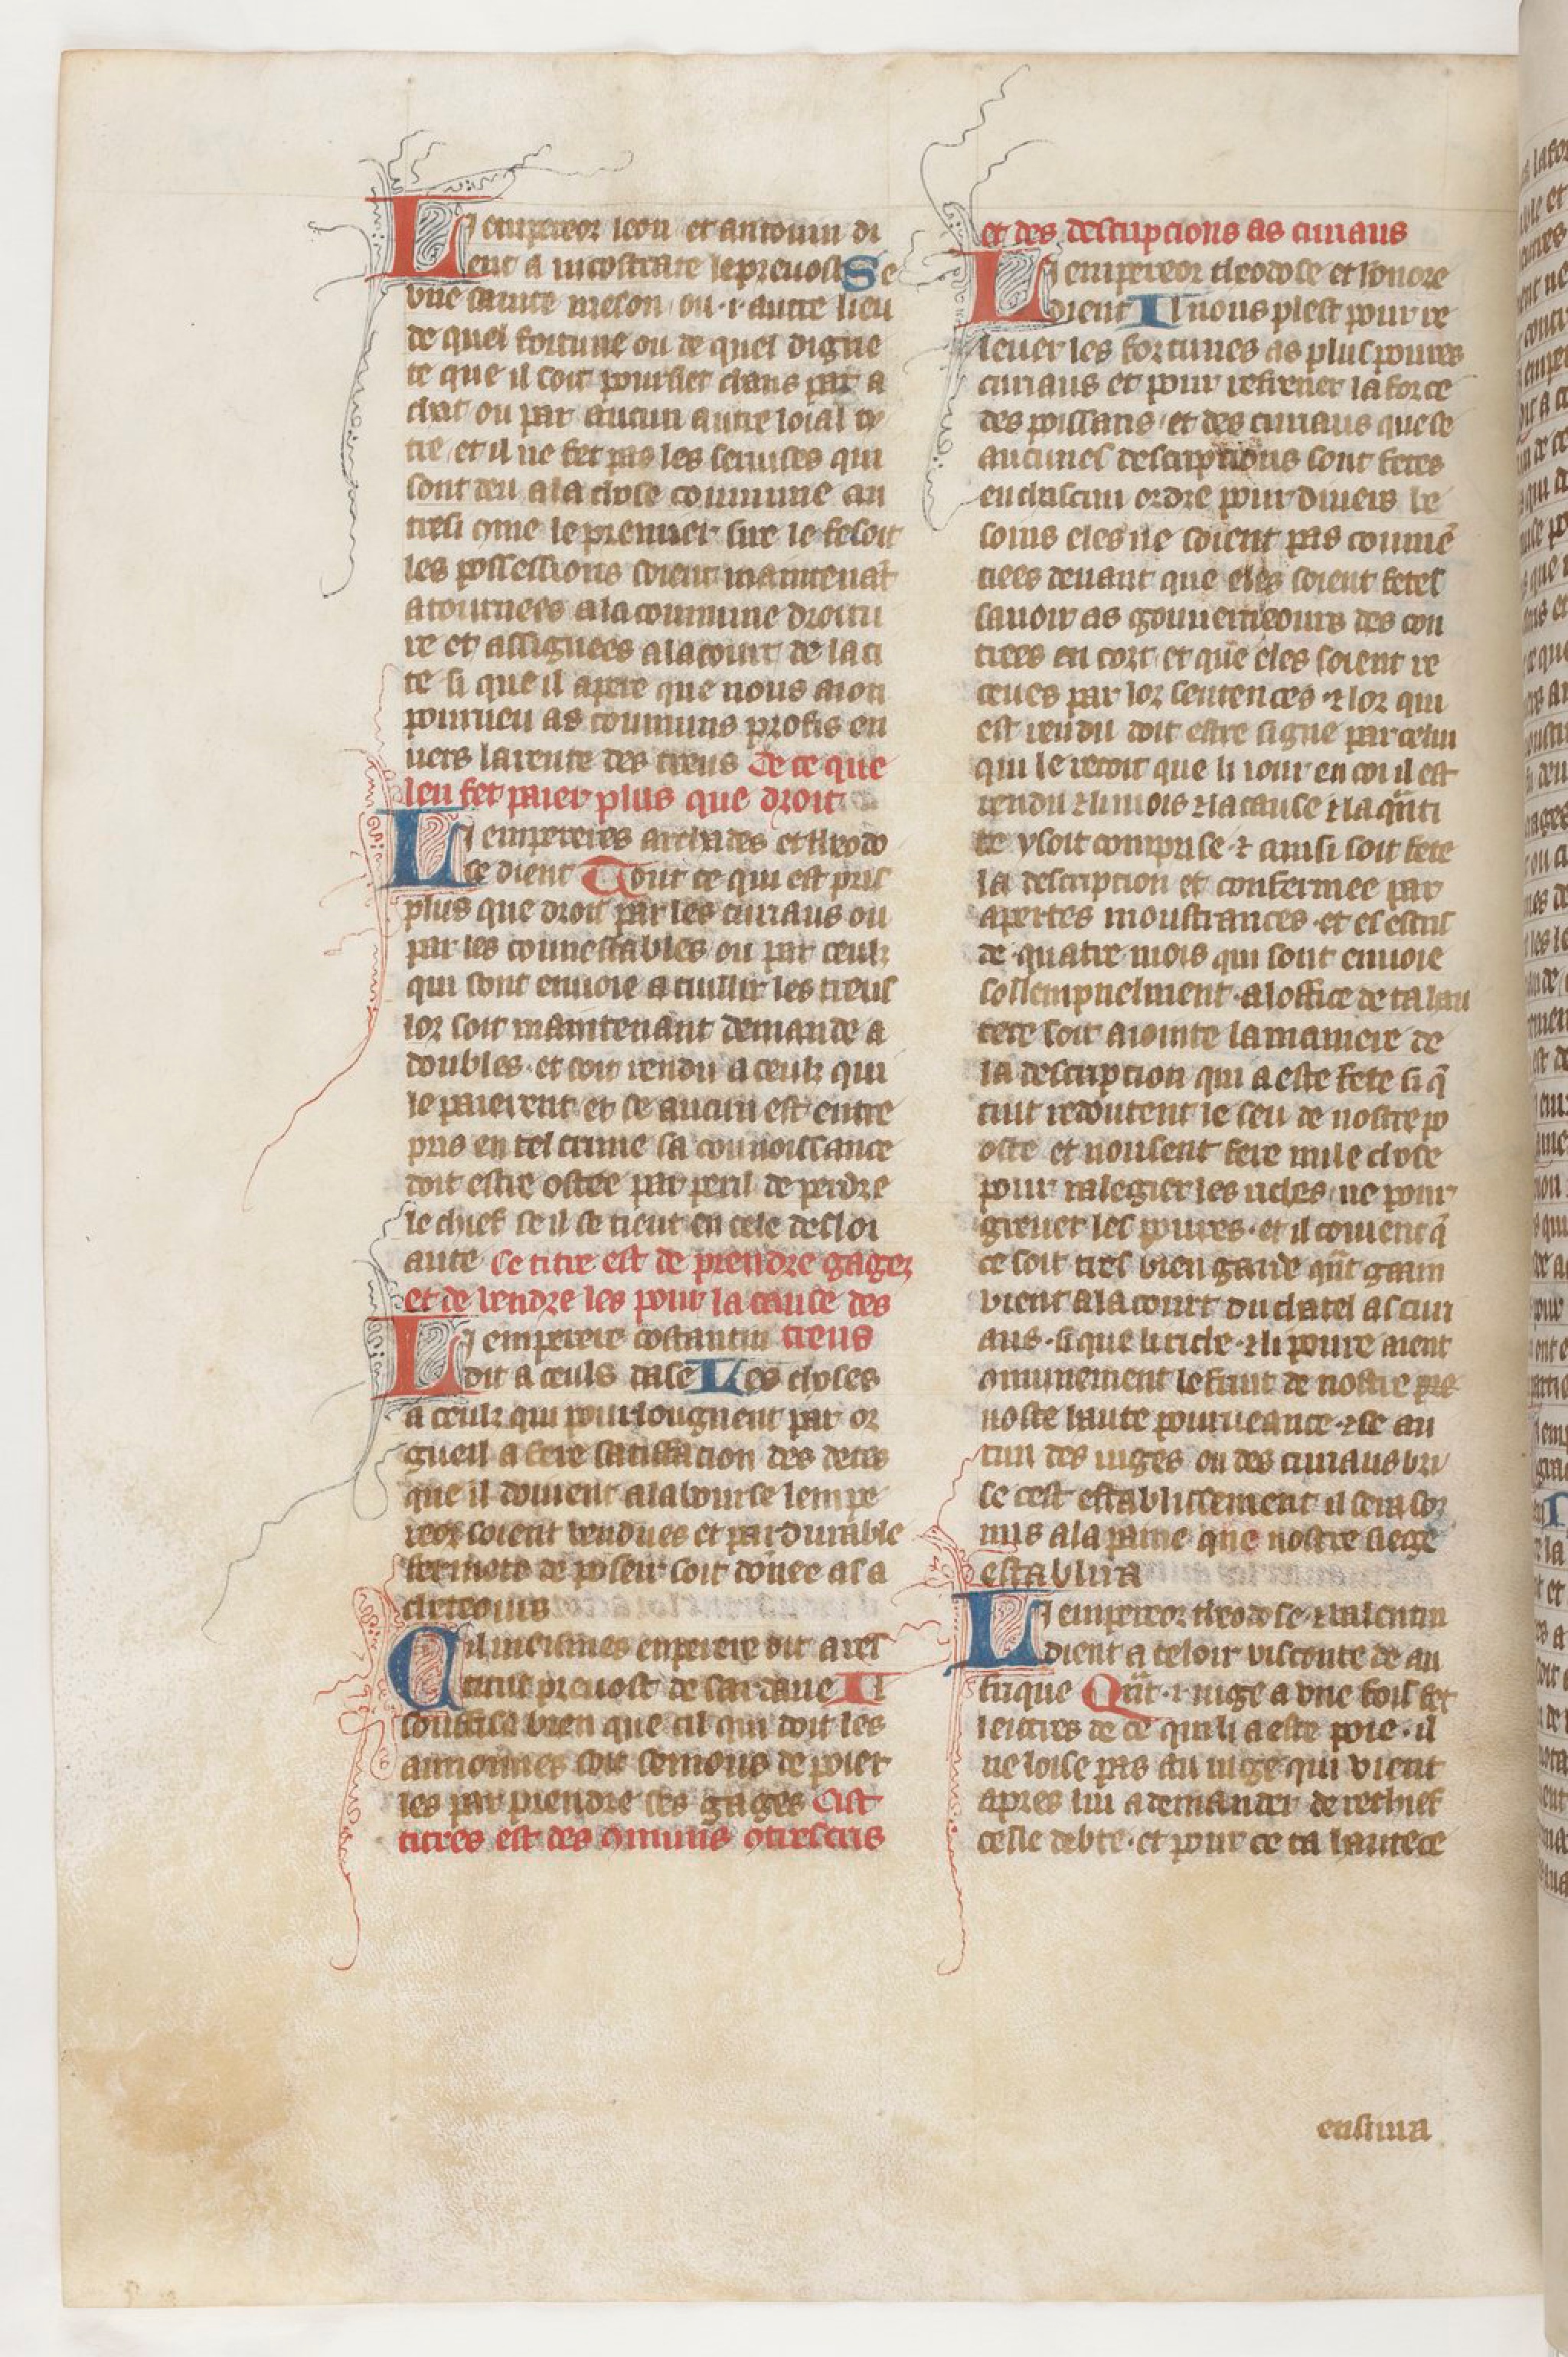 Li empereor leon et antonin di
ent a nicostrate le preuost Se
vne sainte meson ou .i. autre lieu
de quel fortune ou de quel digne
te que il soit poursiet chans par a
chat ou par aucun autre loial ti
tre et il ne fet pas les seruises qui
sont deu a la chose commune au
tresi cme le premier sire le fesoit
les possessions soient maintenāt
atournees a la commune droitu
re et assignees a la court de la ci
te si que il apere que nous aion
pourueu as communs profis en
uers la rente des treus De ce que
len fet paier plus que droit
Li empereres archades et theodo
se dient Tout ce qui est pris
plus que droit par les curiaus ou
par les connestables ou par ceulz
qui sont enuoie a cuillir les treus
lor soit maintenant demande a
doubles. et soit rendu a ceulz qui
le paierent et se aucun est entre
pris en tel crime sa connoissance
doit estre ostee par peril de perdre
le chief se il se tient en cele desloi
aute Ce titre est de prendre gagez
et de vendre les pour la cause des
Li emperere costantin treus
dit a ceuls dase Les choses
a ceulz qui pourlongnent par or
gueil a fere satiffacion des detes
que il doiuent a la bourse lempe
reor soient vendues et pardurable
fermete de poseir soit donee as a
cheteours
Cil meismes emperere dit a ref
titut preuost de sardane Il
souffise bien que cil qui doit les
annonnes soit semons de poier
les par prendre ses gages Cist
titres est des qmuns qtrescris
et des descripcions as curiaus
Li empereor theodose et honore
dient Il nous plest pour re
leuer les fortunes as plus poures
curiaus et pour refrener la force
des poissans et des curiaus que se
aucunes descripcions sont fetes
en chascun ordre pour diuers be
soins eles ne soient pas coumē
ciees deuant que eles soient fetes
sauoir as gouuerneours des con
trees en cort et que eles soient re
ceues par lor sentences ⁊ lor qui
est rendu doit estre signe par celui
qui le recoit que li iour en coi il est
rendu ⁊ li mois ⁊ la cause ⁊ la qⁿti
te y soit comprise ⁊ ainsi soit fete
la descripcion et confermee par
apertes moustrances . et es escris
de quatre mois qui sont enuoie
sollempnelment . a loffice de ta hau
tece soit aiointe la maniere de
la descripcion qui a este fete si q̄
tuit redoutent le seu de nostre po
oste et nousent fere nule chose
pour ralegier les riches ne pour
greuer les poures . et il couient q̄
ce soit tres bien garde qⁿt gaain
vient a la court du chatel as curi
aus . si que li riche . ⁊ li poure aient
qmunement le fruit de nostre pre
noste haute pourueance . ⁊ se au
cun des iuges ou des curiaus bri
se cest establissement il sera sor
mis a la paine que nostre siege
establira
Li empereor theodose ⁊ valentin
dient a celoir visconte de au
frique Qⁿt .i. iuge a vne fois fet
lettres de ce qui li a este poie . il
ne loise pas au iuge qui vient
apres lui a demander de rechief
celle debte . et pour ce ta hautece